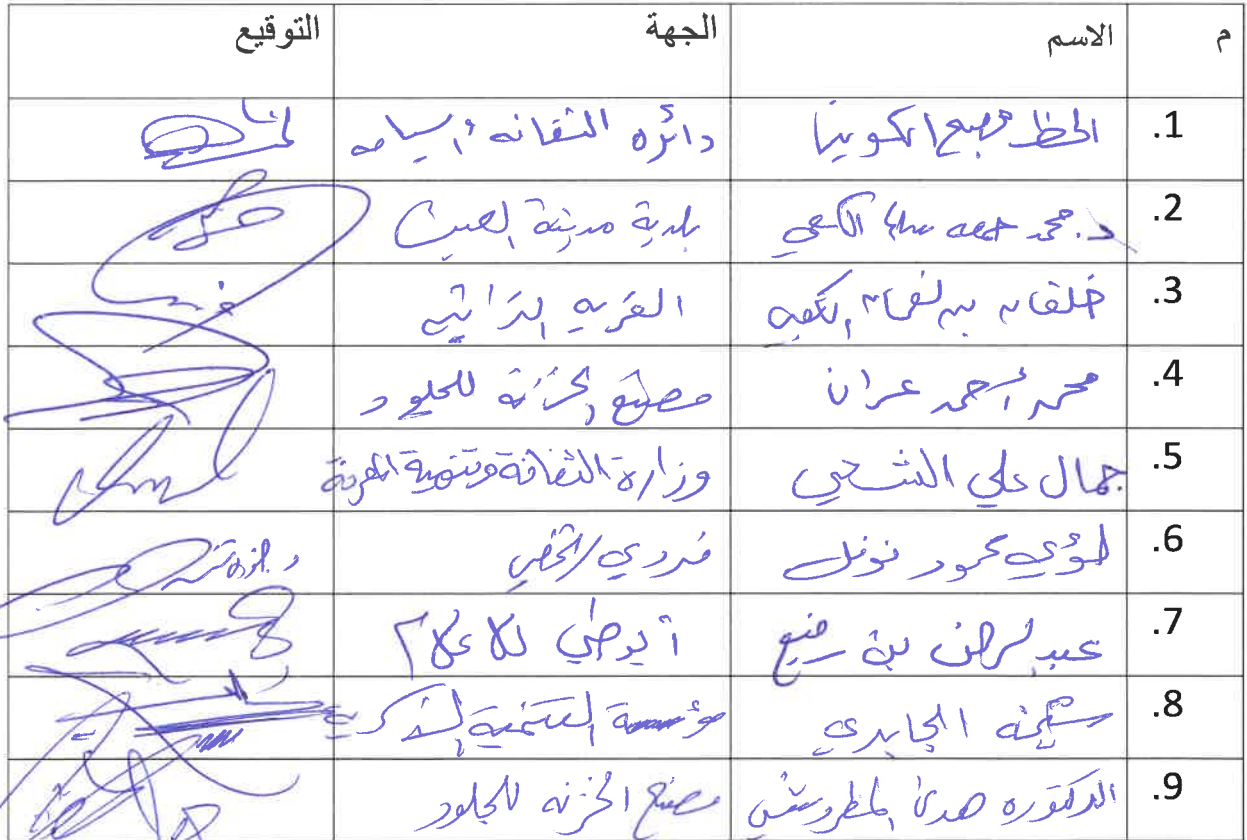 م الاسم الجهة التوقيع
.1 دائرة الثقافة والسياحه
.2 د. محمد جمعه سالم الكعبي بلدية مدينة العين
.3 خلفان بن نعمان الكعبي القريه التراثيه
.4 محمد أحمد عران مصنع الخزنة للجلود
.5 جمال علي الشحي وزارة الثقافة وتنمية المعرفة
.6 لؤي محمود نوفل
.7 عبدالرحمن بن منيع أبوظبي للاعلام
.8 شيخه الجابري مؤسسة التنمية الأسرية
.9 الدكتوره هدى المطروشي مصنع الخزنه للجلود